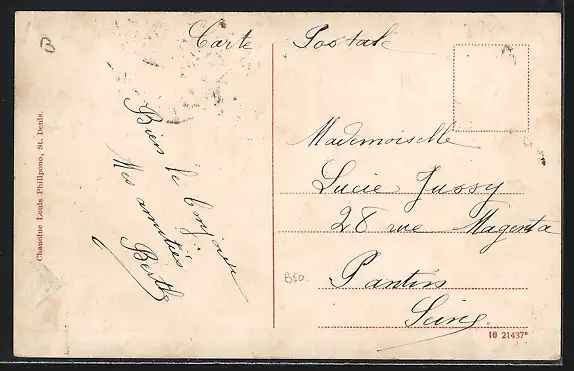 Carte Postale
Chanoine Louis Philippono, St. Denis.
Bien le bonjour
Mes amitiés
Berthe
Mademoiselle
Lucie Jussy
28 rue Magenta
Pantin
Seine
B50.
10 21437*